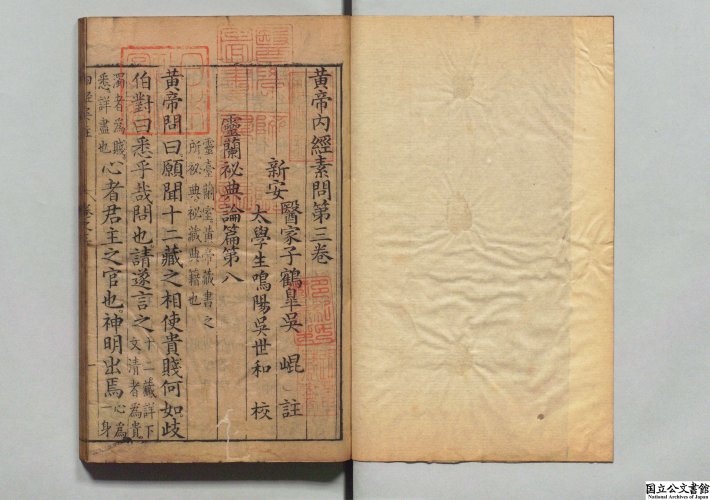 黄帝内經素問第三卷
新安
醫家子鶴臯吳崐註
太學生鳴陽吳世和校
靈蘭祕典論篇第八
靈臺蘭室黄帝藏書之
所祕典祕藏典籍也
黄帝問曰願聞十二藏之相使貴賤何如歧
伯對曰悉乎哉問也請遂言之
十二藏詳下
文清者為貴
濁者為賤
悉詳盡也
心者君主之官也神明出焉
心為
一身
国立公文書館
National Archives of Japan